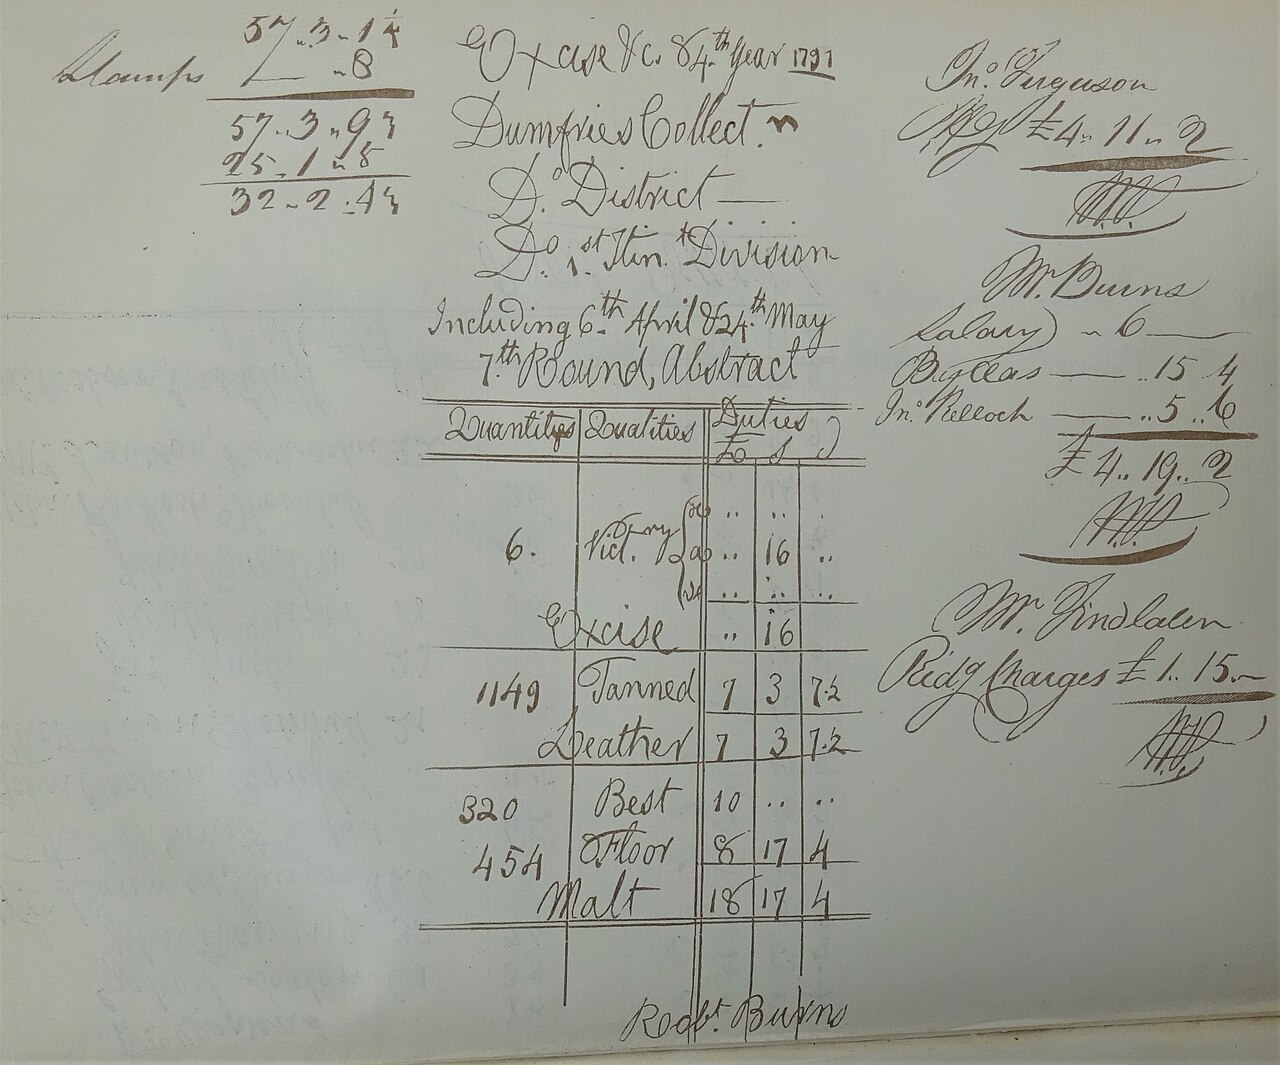 57 .. 3 - 1 1/4
Stamps — .. 8
57 .. 3 .. 9 1/4
25 .. 1 .. 8
32 .. 2 .. 1 1/4
Excise &c. 84.th Year 1791
Dumfries Collect.n
D.o District —
D.o 1.st Itin.t Division
Including 6.th April & 24.th May
7.th Round, Abstract
Quantitys Qualities Duties
£ S D
6. Vict.ry .. 16 ..
Excise .. 16
1149 Tanned 7 3 7.2
Leather 7 3 7.2
320 Best 10 .. ..
454 Floor 8 17 4
Malt 18 17 4
Robt. Burns
Jn.o Ferguson
£4 .. 11 .. 2
Mr. Burns
Salary .. 6 —
— .. 15 4
Jn.o Kelloch — .. 5 .. 6
£4 .. 19 .. 2
Mr. Findlater
Ridg Charges £1 .. 15 .. —